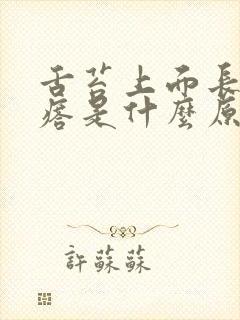 舌苔上面長
痞是什麼原
許蘇蘇